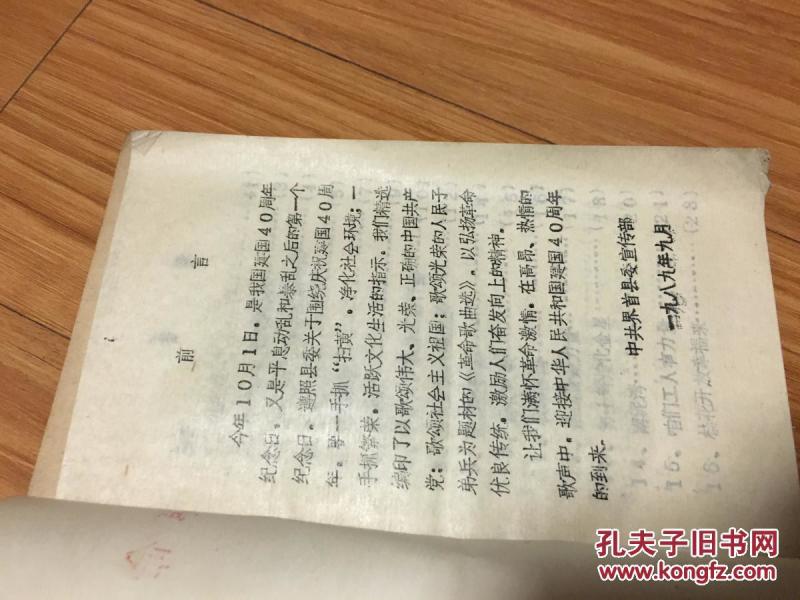 前言
今年10月1日。是我国建国40周年
纪念日。又是平息动乱和暴乱之后的第一个
纪念日。遵照县委关于围绕庆祝建国40周
年。要一手抓“扫黄”。净化社会环境；一
手抓繁荣。活跃文化生活的指示。我们精选
编印了以歌颂伟大、光荣、正确的中国共产
党；歌颂社会主义祖国；歌颂光荣的人民子
弟兵为题材的《革命歌曲选》。以弘扬革命
优良传统。激励人们奋发向上的精神。
让我们满怀革命激情。在高昂、热情的
歌声中。迎接中华人民共和国建国40周年
的到来。
中共界首县委宣传部
一九八九年九月
孔夫子旧书网
www.kongfz.com